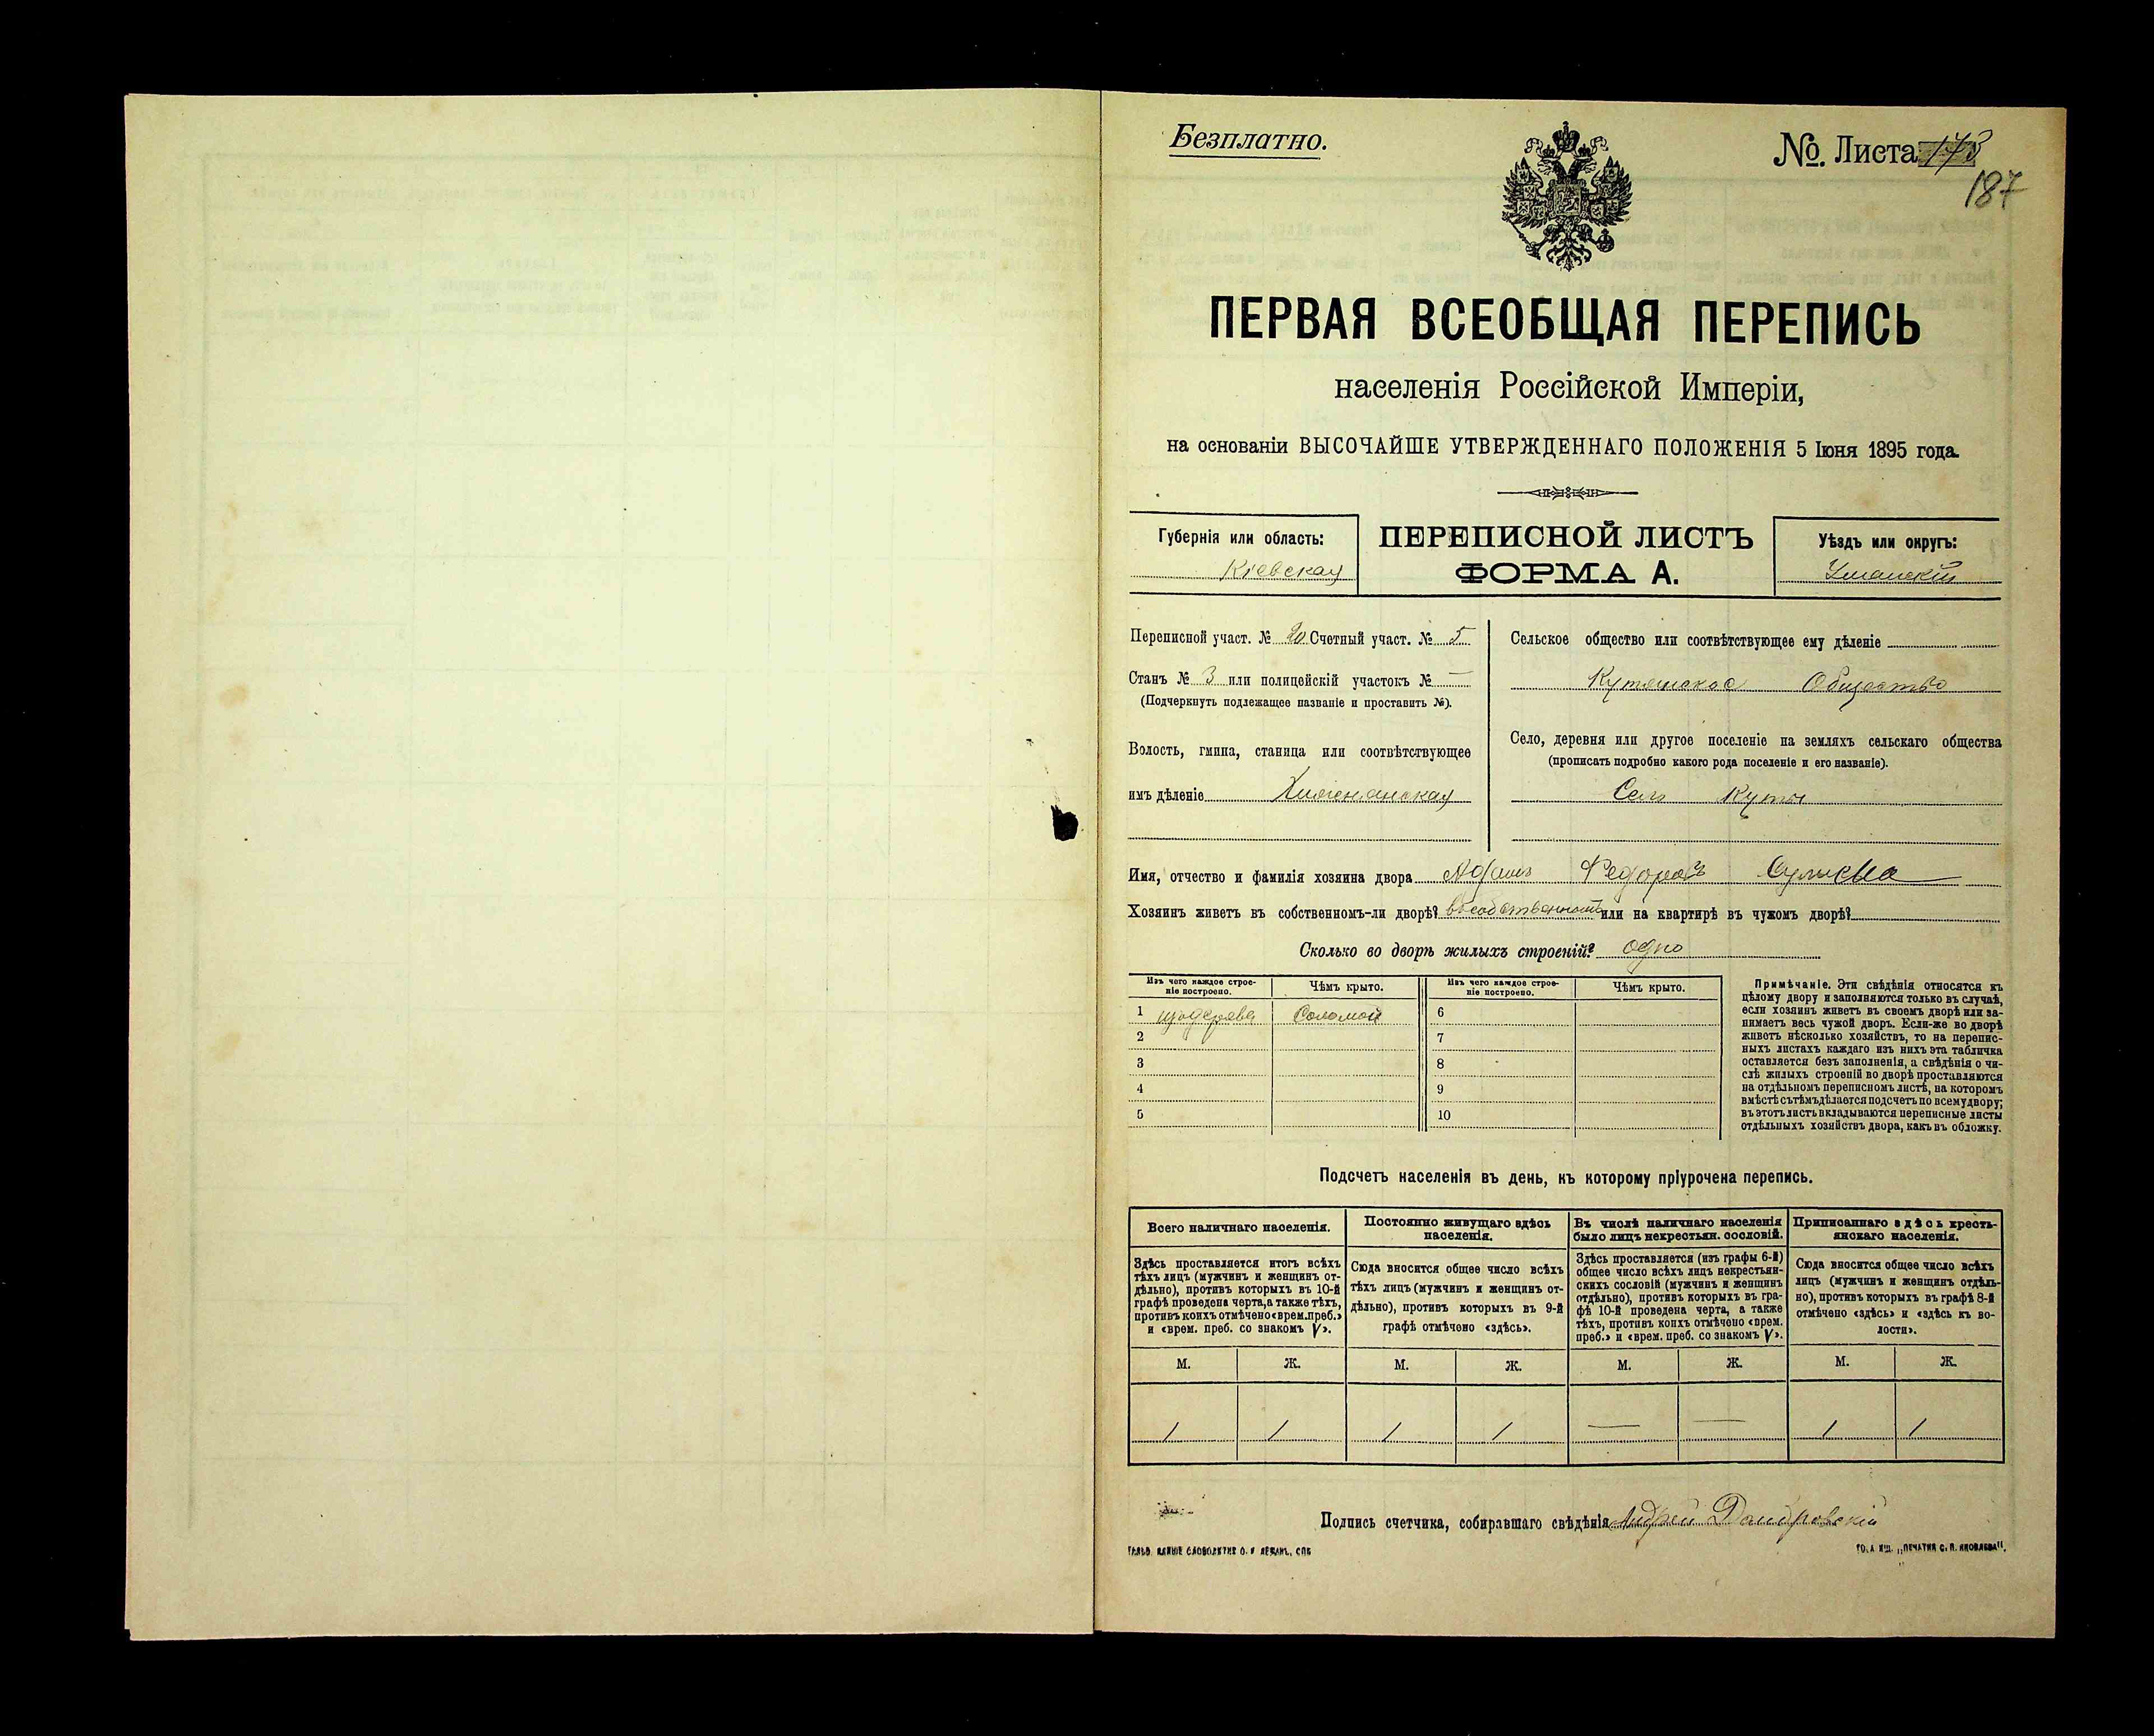 Безплатно.
№. Листа 173
187
ПЕРВАЯ ВСЕОБЩАЯ ПЕРЕПИСЬ
населенія Россійской Имперіи,
на основаніи ВЫСОЧАЙШЕ УТВЕРЖДЕННАГО ПОЛОЖЕНІЯ 5 Іюня 1895 года.
Губернія или область:
Кіевская
ПЕРЕПИСНОЙ ЛИСТЪ
ФОРМА А.
Уѣздъ или округъ:
Уманскій
Переписной участ. № 20 Счетный участ. № 5
Станъ № 3 или полицейскій участокъ № —
(Подчеркнуть подлежащее названіе и проставить №).
Волость, гмина, станица или соотвѣтствующее
имъ дѣленіе
Сельское общество или соотвѣтствующее ему дѣленіе
Общество
Село, деревня или другое поселеніе на земляхъ сельскаго общества
(прописать подробно какого рода поселеніе и его названіе).
Село Куты
Имя, отчество и фамилія хозяина двора Федоровъ Сулима
Хозяинъ живетъ въ собственномъ-ли дворѣ? въ собственномъ или на квартирѣ въ чужомъ дворѣ?
Сколько во дворѣ жилыхъ строеній? одно
Изъ чего каждое строе-
ніе построено.
Чѣмъ крыто.
Изъ чего каждое строе-
ніе построено.
Чѣмъ крыто.
1 изъ дерева Соломой
2
3
4
5
6
7
8
9
10
Примѣчаніе. Эти свѣдѣнія относятся къ
цѣлому двору и заполняются только въ случаѣ,
если хозяинъ живетъ въ своемъ дворѣ или за-
нимаетъ весь чужой дворъ. Если-же во дворѣ
живетъ нѣсколько хозяйствъ, то на перепис-
ныхъ листахъ каждаго изъ нихъ эта табличка
оставляется безъ заполненія, а свѣдѣнія о чи-
слѣ жилыхъ строеній во дворѣ проставляются
на отдѣльномъ переписномъ листѣ, на которомъ
вмѣстѣ съ тѣмъ дѣлается подсчетъ по всему двору;
въ этотъ листъ вкладываются переписные листы
отдѣльныхъ хозяйствъ двора, какъ въ обложку.
Подсчетъ населенія въ день, къ которому пріурочена перепись.
Всего наличнаго населенія.
Здѣсь проставляется итогъ всѣхъ
тѣхъ лицъ (мужчинъ и женщинъ от-
дѣльно), противъ которыхъ въ 10-й
графѣ проведена черта, а также тѣхъ,
противъ коихъ отмѣчено «врем. преб.»
и «врем. преб. со знакомъ V».
Постоянно живущаго здѣсь
населенія.
Сюда вносится общее число всѣхъ
тѣхъ лицъ (мужчинъ и женщинъ от-
дѣльно), противъ которыхъ въ 9-й
графѣ отмѣчено «здѣсь».
Въ числѣ наличнаго населенія
было лицъ некрестьян. сословій.
Здѣсь проставляется (изъ графы 6-й)
общее число всѣхъ лицъ некрестьян-
скихъ сословій (мужчинъ и женщинъ
отдѣльно), противъ которыхъ въ гра-
фѣ 10-й проведена черта, а также
тѣхъ, противъ коихъ отмѣчено «врем.
преб.» и «врем. преб. со знакомъ V».
Приписаннаго здѣсь кресть-
янскаго населенія.
Сюда вносится общее число всѣхъ
лицъ (мужчинъ и женщинъ отдѣль-
но), противъ которыхъ въ графѣ 8-й
отмѣчено «здѣсь» и «здѣсь къ во-
лости».
М. Ж. М. Ж. М. Ж. М. Ж.
1 1 1 1 — — 1 1
Подпись счетчика, собиравшаго свѣдѣнія Андрей